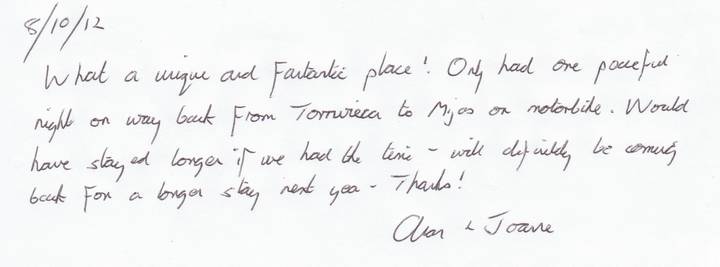 8/10/12
What a unique and Fantastic place! Only had one peaceful
night on way back From Torrevieca to Mijas on motorbike. Would
have stayed longer if we had the time - will definitely be coming
back For a longer stay next year - Thanks!
& Joanne